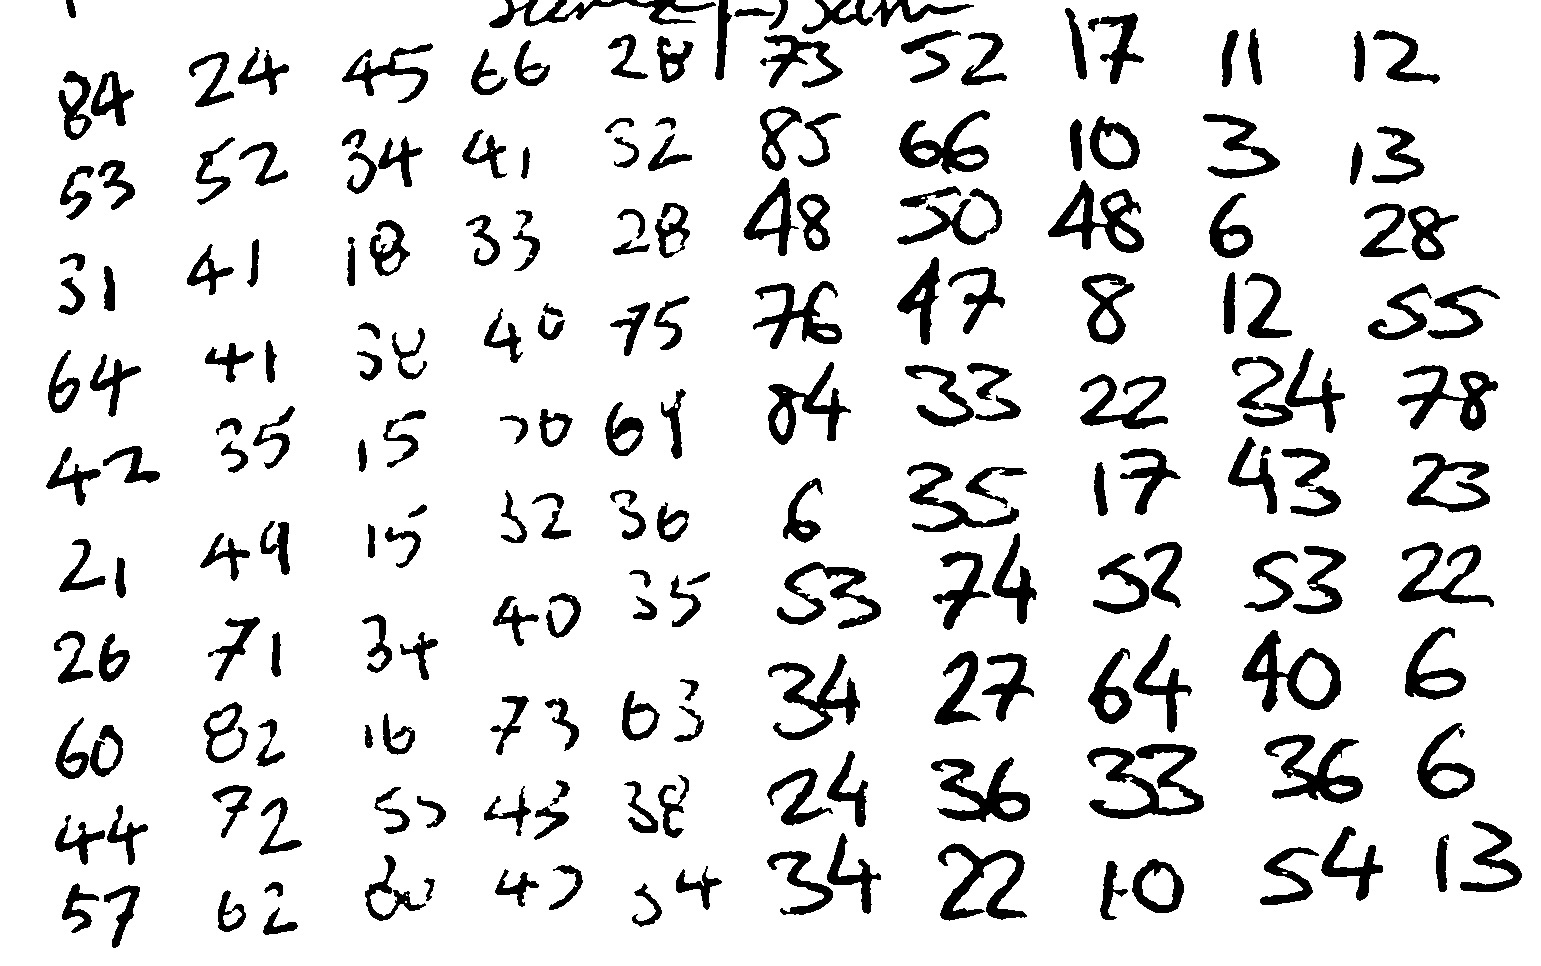 84 24 45 66 28 73 52 17 11 12
53 52 34 41 32 85 66 10 3 13
31 41 18 33 28 48 50 48 6 28
64 41 38 40 75 76 47 8 12 55
42 35 15 20 69 84 33 22 34 78
21 49 15 32 36 6 35 17 43 23
26 71 34 40 35 53 74 52 53 22
60 82 16 73 63 34 27 64 40 6
44 72 43 38 24 36 33 36 6
57 62 54 34 22 10 54 13